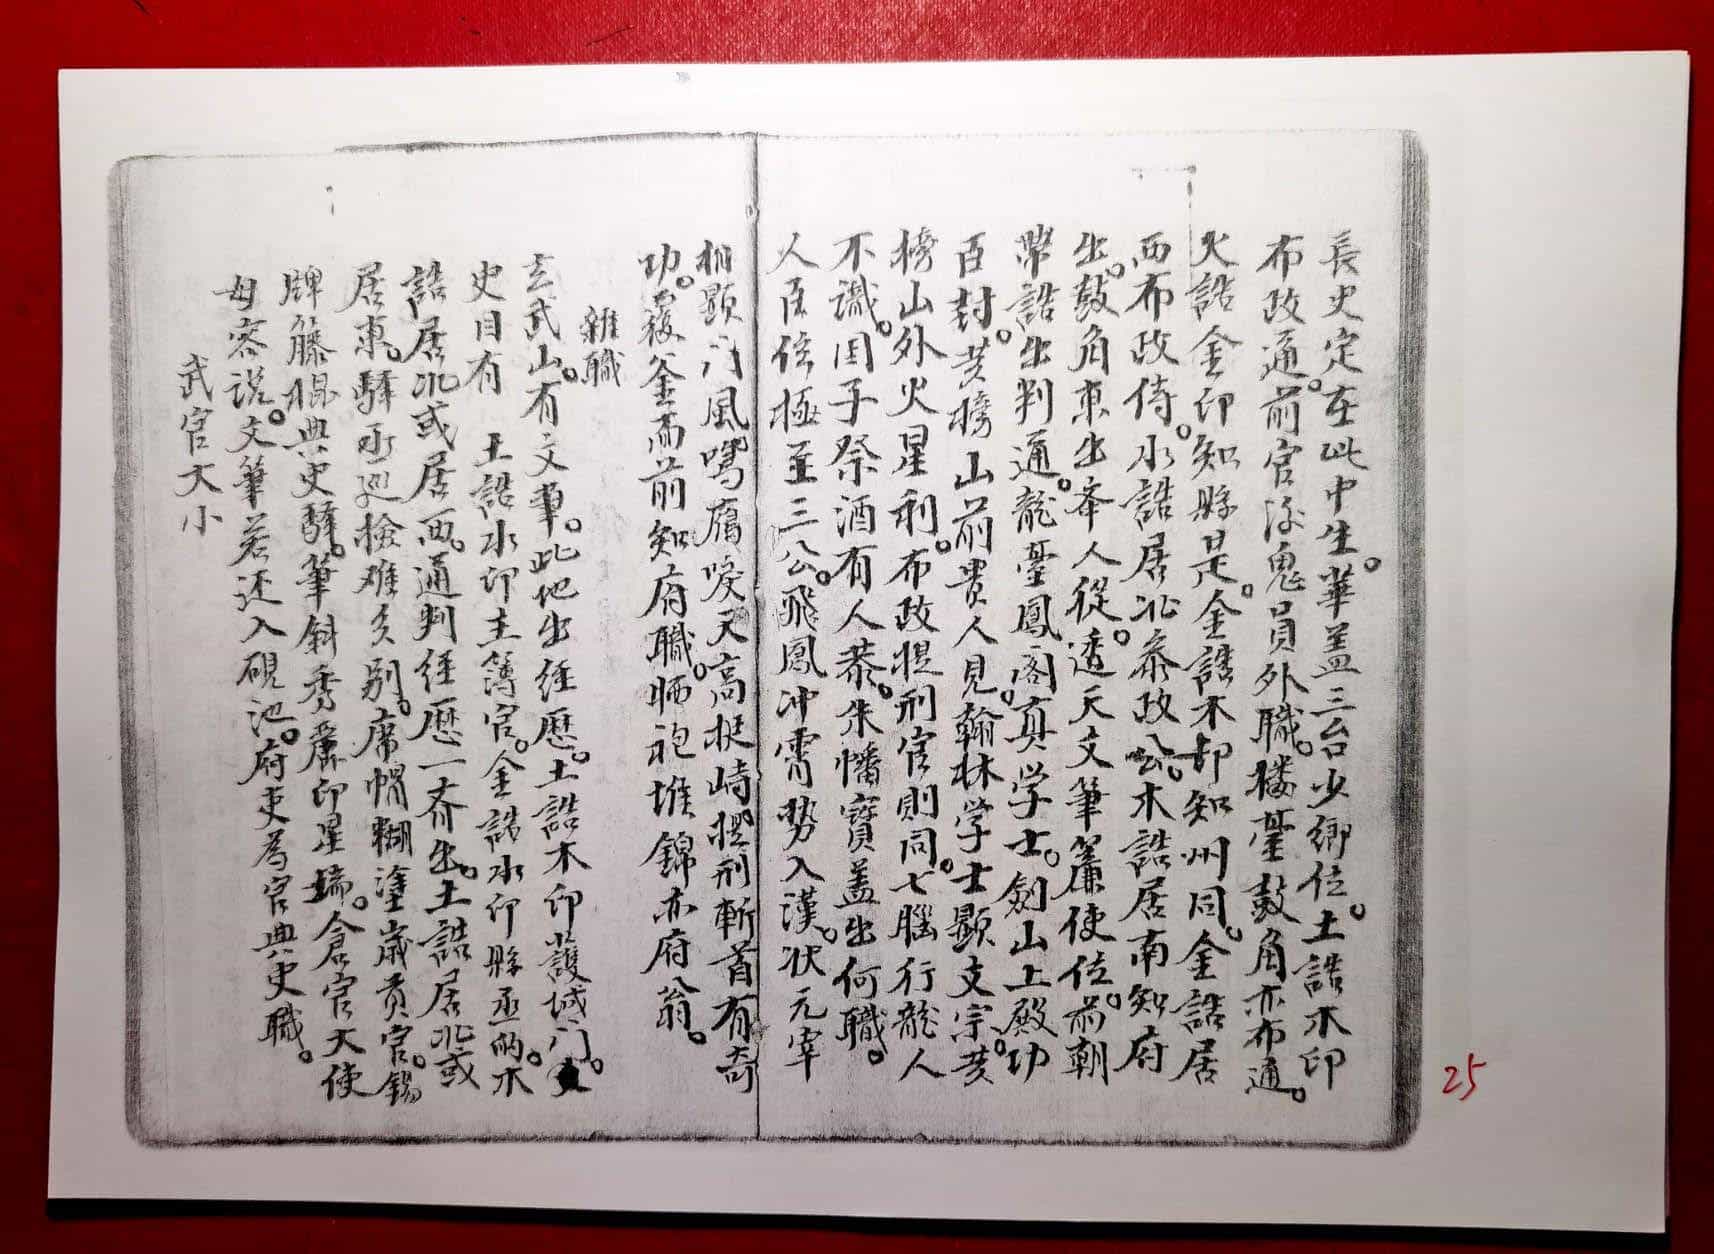 長史定在此中生。華蓋三台少卿位。土誥木印
布政通。前官後鬼員外職。楼臺鼓角亦布通。
火誥金印知縣是。金誥木却知州同。金誥居
西布政侍。水誥居北叅政公。木誥居南知府
出。鼓角東出奉人從。透天文筆簾使位。前朝
誥出判通。龍臺鳳阁真学士。劍山上殿功
臣封。黄榜山前貴人見。翰林学士顯文宗。黄
榜山外火星利。布政提刑官則同。七腦行龍人
不識。国子祭酒有人恭。朱幡寳蓋出何職。
人臣位極至三公。飛鳳冲霄勢入漢。状元宰
相顯门風。鳴唳天高挺峙提刑斬首有奇
功。覆釜而前知府職。晒袍堆錦亦府翁。
雜職
玄武山。有文筆。此地出经歷。土誥木印護城门。
史目有 土誥水印主簿官。金誥水印縣丞的。木
誥居北或居西。通判经歷一齐出。土誥居北或
居東。驛丞巡檢难分别。席帽糊塗歲貢官。錫
牌籐棍典史驛。筆斜秀麗印星端。倉官大使
毋容说。文筆若还入硯池。府吏為官典史職。
武官大小
25